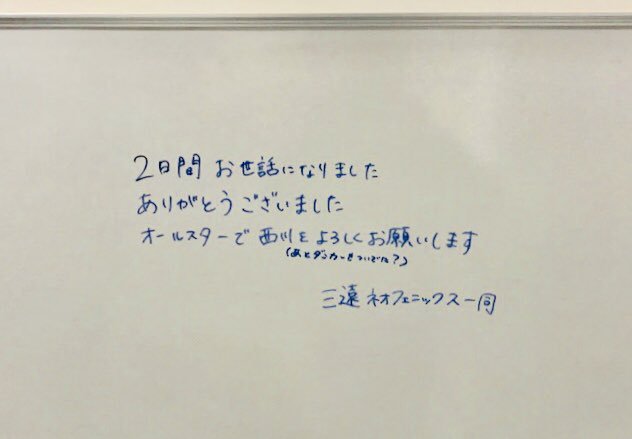 2日間 お世話になりました
ありがとうございました
オールスターで 西川を よろしくお願いします
(あとダンカーを
三遠 ネオフェニックス一同